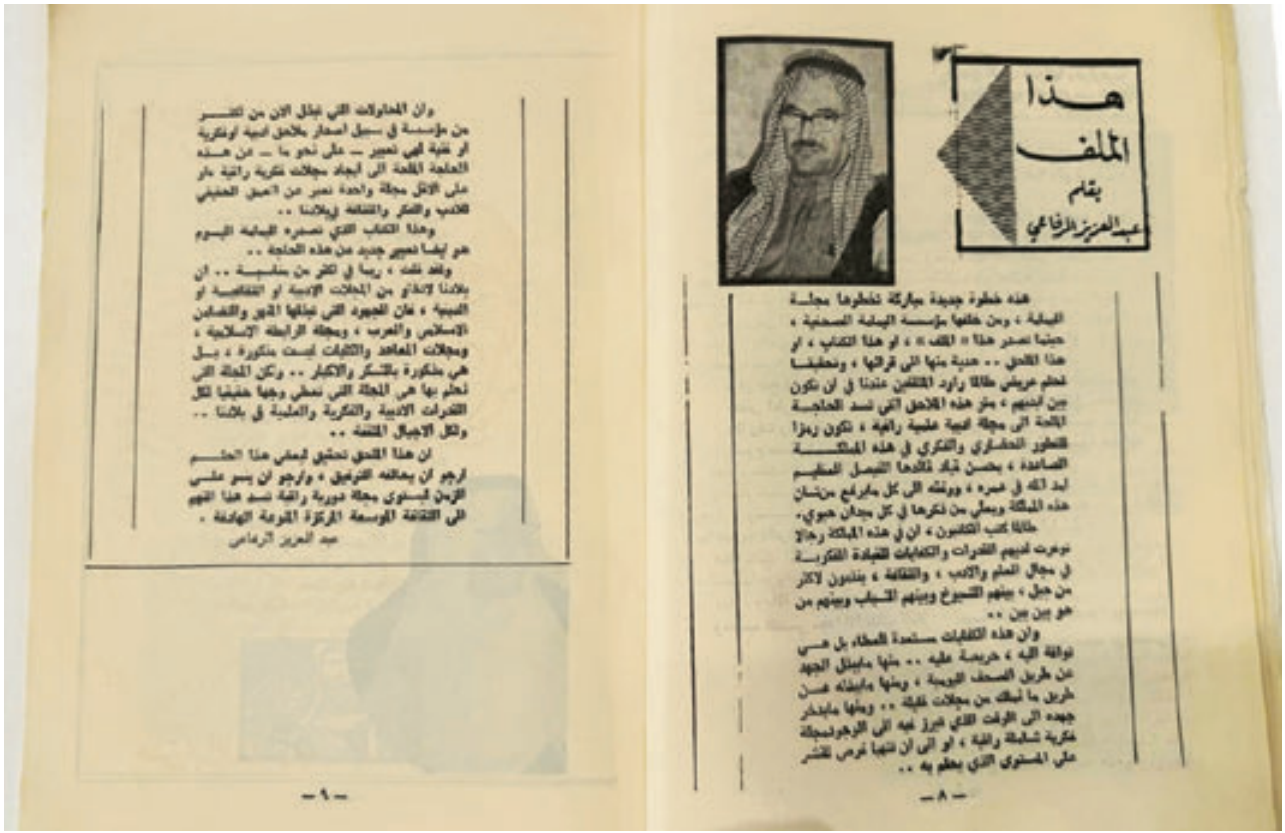 هذا
الملف
بقلم
عبد العزيز الرفاعي
هذه خطوة جديدة مباركة تخطوها مجلة
اليمامة ، ومن خلفها مؤسسة اليمامة الصحفية ،
حينما تصدر هذا « الملف » ، او هذا الكتاب ، او
هذا الملحق .. هدية منها الى قرائها ، وتحقيقا
لحلم عريض طالما راود المثقفين عندنا في ان تكون
بين ايديهم ، مثل هذه الملاحق التي تسد الحاجة
الملحة الى مجلة ادبية علمية راقية ، تكون رمزا
للتطور الحضاري والفكري في هذه المملكـــــة
الصاعدة ، بحسن قياد قائدها الفيصل العظيم
امد الله في عمره ، ووفقه الى كل مايرفع من شان
هذه المملكة ويعلي من ذكرها في كل ميدان حيوي.
طالما كتب الكاتبون ، ان في هذه المملكة رجالا
توفرت لديهم القدرات والكفايات للقيادة الفكريــة
في مجال العلم والادب ، والثقافة ، ينتمون لاكثر
من جيل ، بينهم الشيوخ وبينهم الشباب وبينهم من
هو بين بين ..
وان هذه الكفايات مستعدة للعطاء بل هــي
تواقة اليه ، حريصة عليه .. منها مايبذل الجهد
عن طريق الصحف اليومية ، ومنها مايبذله عــن
طريق ما نملك من مجلات قليلة .. ومنها مايدخر
جهده الى الوقت الذي تبرز فيه الى الوجود مجلة
فكرية شاملة راقية ، او الى ان تتهيا فرص للنشر
على المستوى الذي يحلم به ..
— ٨ —
وان المحاولات التي تبذل الان من اكثــــر
من مؤسسة في سبيل اصدار ملاحق ادبية او فكرية
او فنية لهي تعبير — على نحو ما — عن هــذه
الحاجة الملحة الى ايجاد مجلات فكرية راقية ،او
على الاقل مجلة واحدة تعبر عن العمق الحقيقي
للادب والفكر والثقافة في بلادنا ..
وهذا الكتاب الذي تصدره اليمامة اليـــوم
هو ايضا تعبير جديد عن هذه الحاجة ..
ولقد قلت ، ربما في اكثر من مناسبــة .. ان
بلادنا لاتخلو من المجلات الادبية او الثقافيــة او
الدينية ، فان الجهود التي تبذلها المنهل والتضامن
الاسلامي والعرب ، ومجلة الرابطة الاسلامية ،
ومجلات المعاهد والكليات ليست منكورة ، بــل
هي مذكورة بالشكر والاكبار .. ولكن المجلة التي
نحلم بها هي المجلة التي تعطي وجها حقيقيا لكل
القدرات الادبية والفكرية والعلمية في بلادنا ..
ولكل الاجيال المثقفة ..
ان هذا الملحق تحقيق لبعض هذا الحلـــم
ارجو ان يحالفه التوفيق ، وارجو ان يسمو علــى
الزمن لمستوى مجلة دورية راقية تسد هذا النهم
الى الثقافة الموسعة المركزة المنوعة الهادفة .
عبد العزيز الرفاعي
— ٩ —